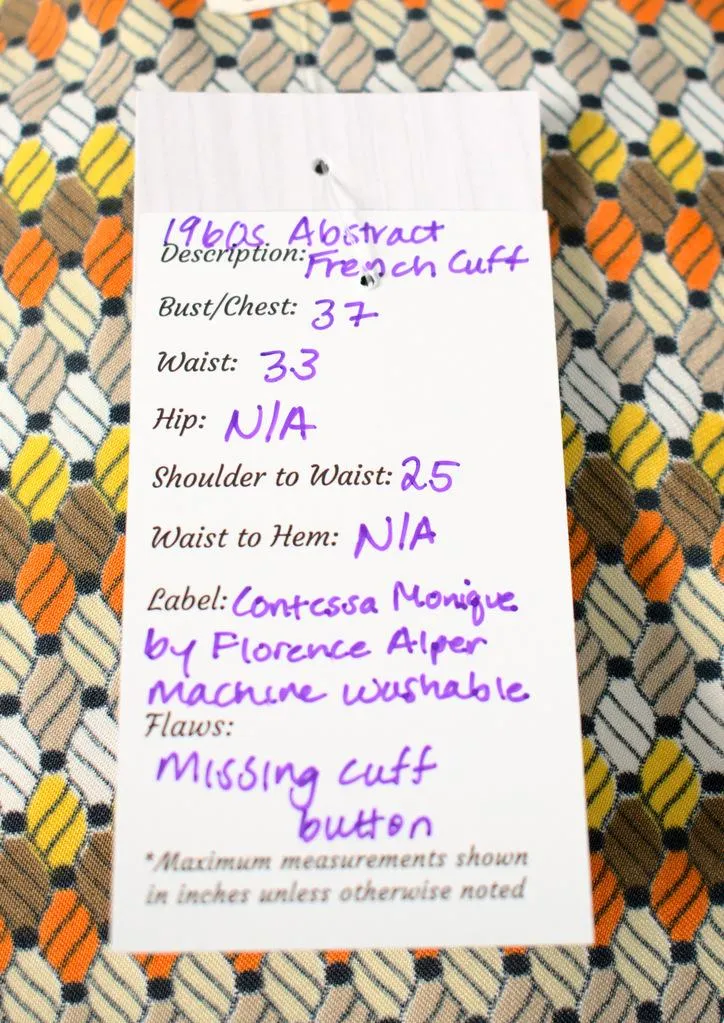 1960s Abstract
Description: French Cuff
Bust/Chest: 37
Waist: 33
Hip: N/A
Shoulder to Waist: 25
Waist to Hem: N/A
Label: Contessa Monique
by Florence Alper
Machine Washable
Flaws:
Missing cuff
button
*Maximum measurements shown
in inches unless otherwise noted